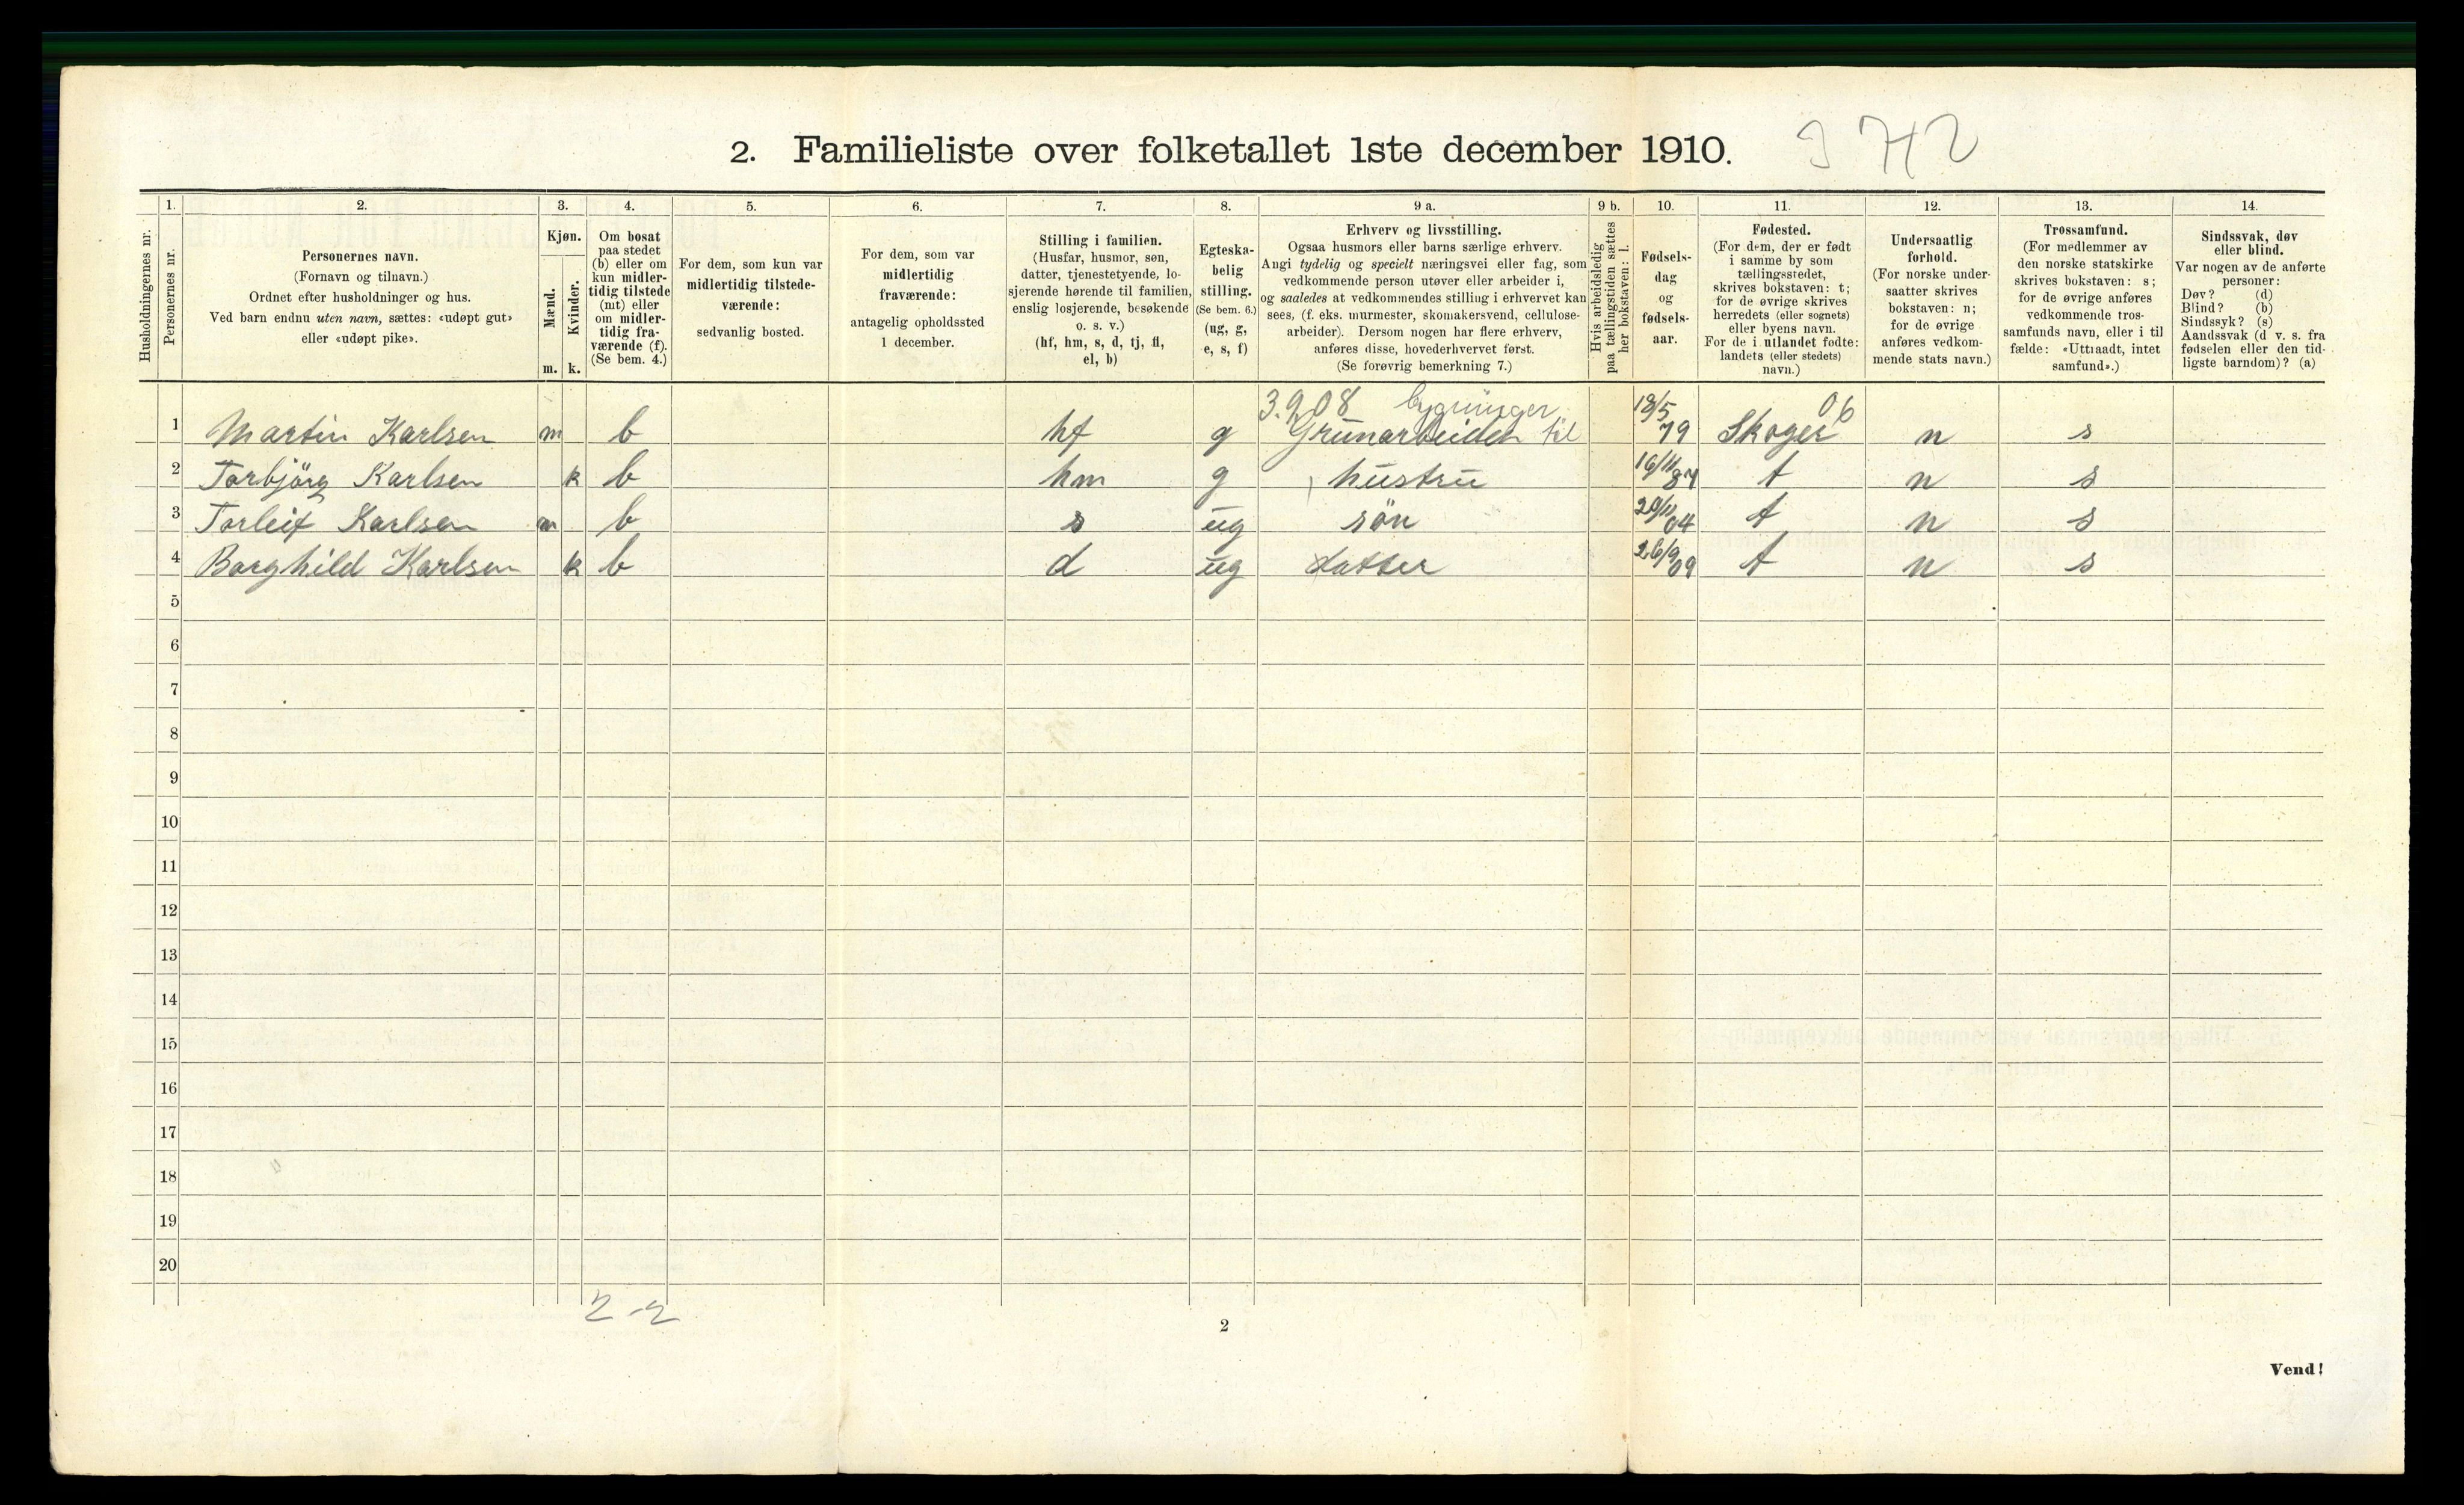 2. Familieliste over folketallet 1ste december 1910.
1. 2. 3. 4. 5. 6. 7. 8. 9 a. 9 b. 10. 11. 12. 13. 14.
Husholdningernes nr.
Personernes nr.
Personernes navn.
(Fornavn og tilnavn.)
Ordnet efter husholdninger og hus.
Ved barn endnu uten navn, sættes: «udøpt gut»
eller «udøpt pike».
Kjøn.
Mænd.
m.
Kvinder.
k.
Om bosat
paa stedet
(b) eller om
kun midler-
tidig tilstede
(mt) eller
om midler-
tidig fra-
værende (f).
(Se bem. 4.)
For dem, som kun var
midlertidig tilstede-
værende:
sedvanlig bosted.
For dem, som var
midlertidig
fraværende:
antagelig opholdssted
1 december.
Stilling i familien.
(Husfar, husmor, søn,
datter, tjenestetyende, lo-
sjerende hørende til familien,
enslig losjerende, besøkende
o. s. v.)
(hf, hm, s, d, tj, fl,
el, b)
Egteska-
belig
stilling.
(Se bem. 6.)
(ug, g,
e, s, f)
Erhverv og livsstilling.
Ogsaa husmors eller barns særlige erhverv.
Angi tydelig og specielt næringsvei eller fag, som
vedkommende person utøver eller arbeider i,
og saaledes at vedkommendes stilling i erhvervet kan
sees, (f. eks. murmester, skomakersvend, cellulose-
arbeider). Dersom nogen har flere erhverv,
anføres disse, hovederhvervet først.
(Se forøvrig bemerkning 7.)
Hvis arbeidsledig
paa tællingstiden sættes
her bokstaven: l.
Fødsels-
dag
og
fødsels-
aar.
Fødested.
(For dem, der er født
i samme by som
tællingsstedet,
skrives bokstaven: t;
for de øvrige skrives
herredets (eller sognets)
eller byens navn.
For de i utlandet fødte:
landets (eller stedets)
navn.)
Undersaatlig
forhold.
(For norske under-
saatter skrives
bokstaven: n;
for de øvrige
anføres vedkom-
mende stats navn.)
Trossamfund.
(For medlemmer av
den norske statskirke
skrives bokstaven: s;
for de øvrige anføres
vedkommende tros-
samfunds navn, eller i til
fælde: «Uttraadt, intet
samfund».)
Sindssvak, døv
eller blind.
Var nogen av de anførte
personer:
Døv? (d)
Blind? (b)
Sindssyk? (s)
Aandssvak (d v. s. fra
fødselen eller den tid-
ligste barndom)? (a)
3.908 bygninger 06
1 Martin Karlsen m b hf g Grunarbeider til 18/5 79 Skoger n s
2 Torbjörg Karlsen k b hm g hustru 16/11 87 t n s
3 Torleif Karlsen m b s ug sön 20/11 04 t n s
4 Borghild Karlsen k b d ug datter 26/9 09 t n s
5
6
7
8
9
10
11
12
13
14
15
16
17
18
19
20
2-2
2
Vend!